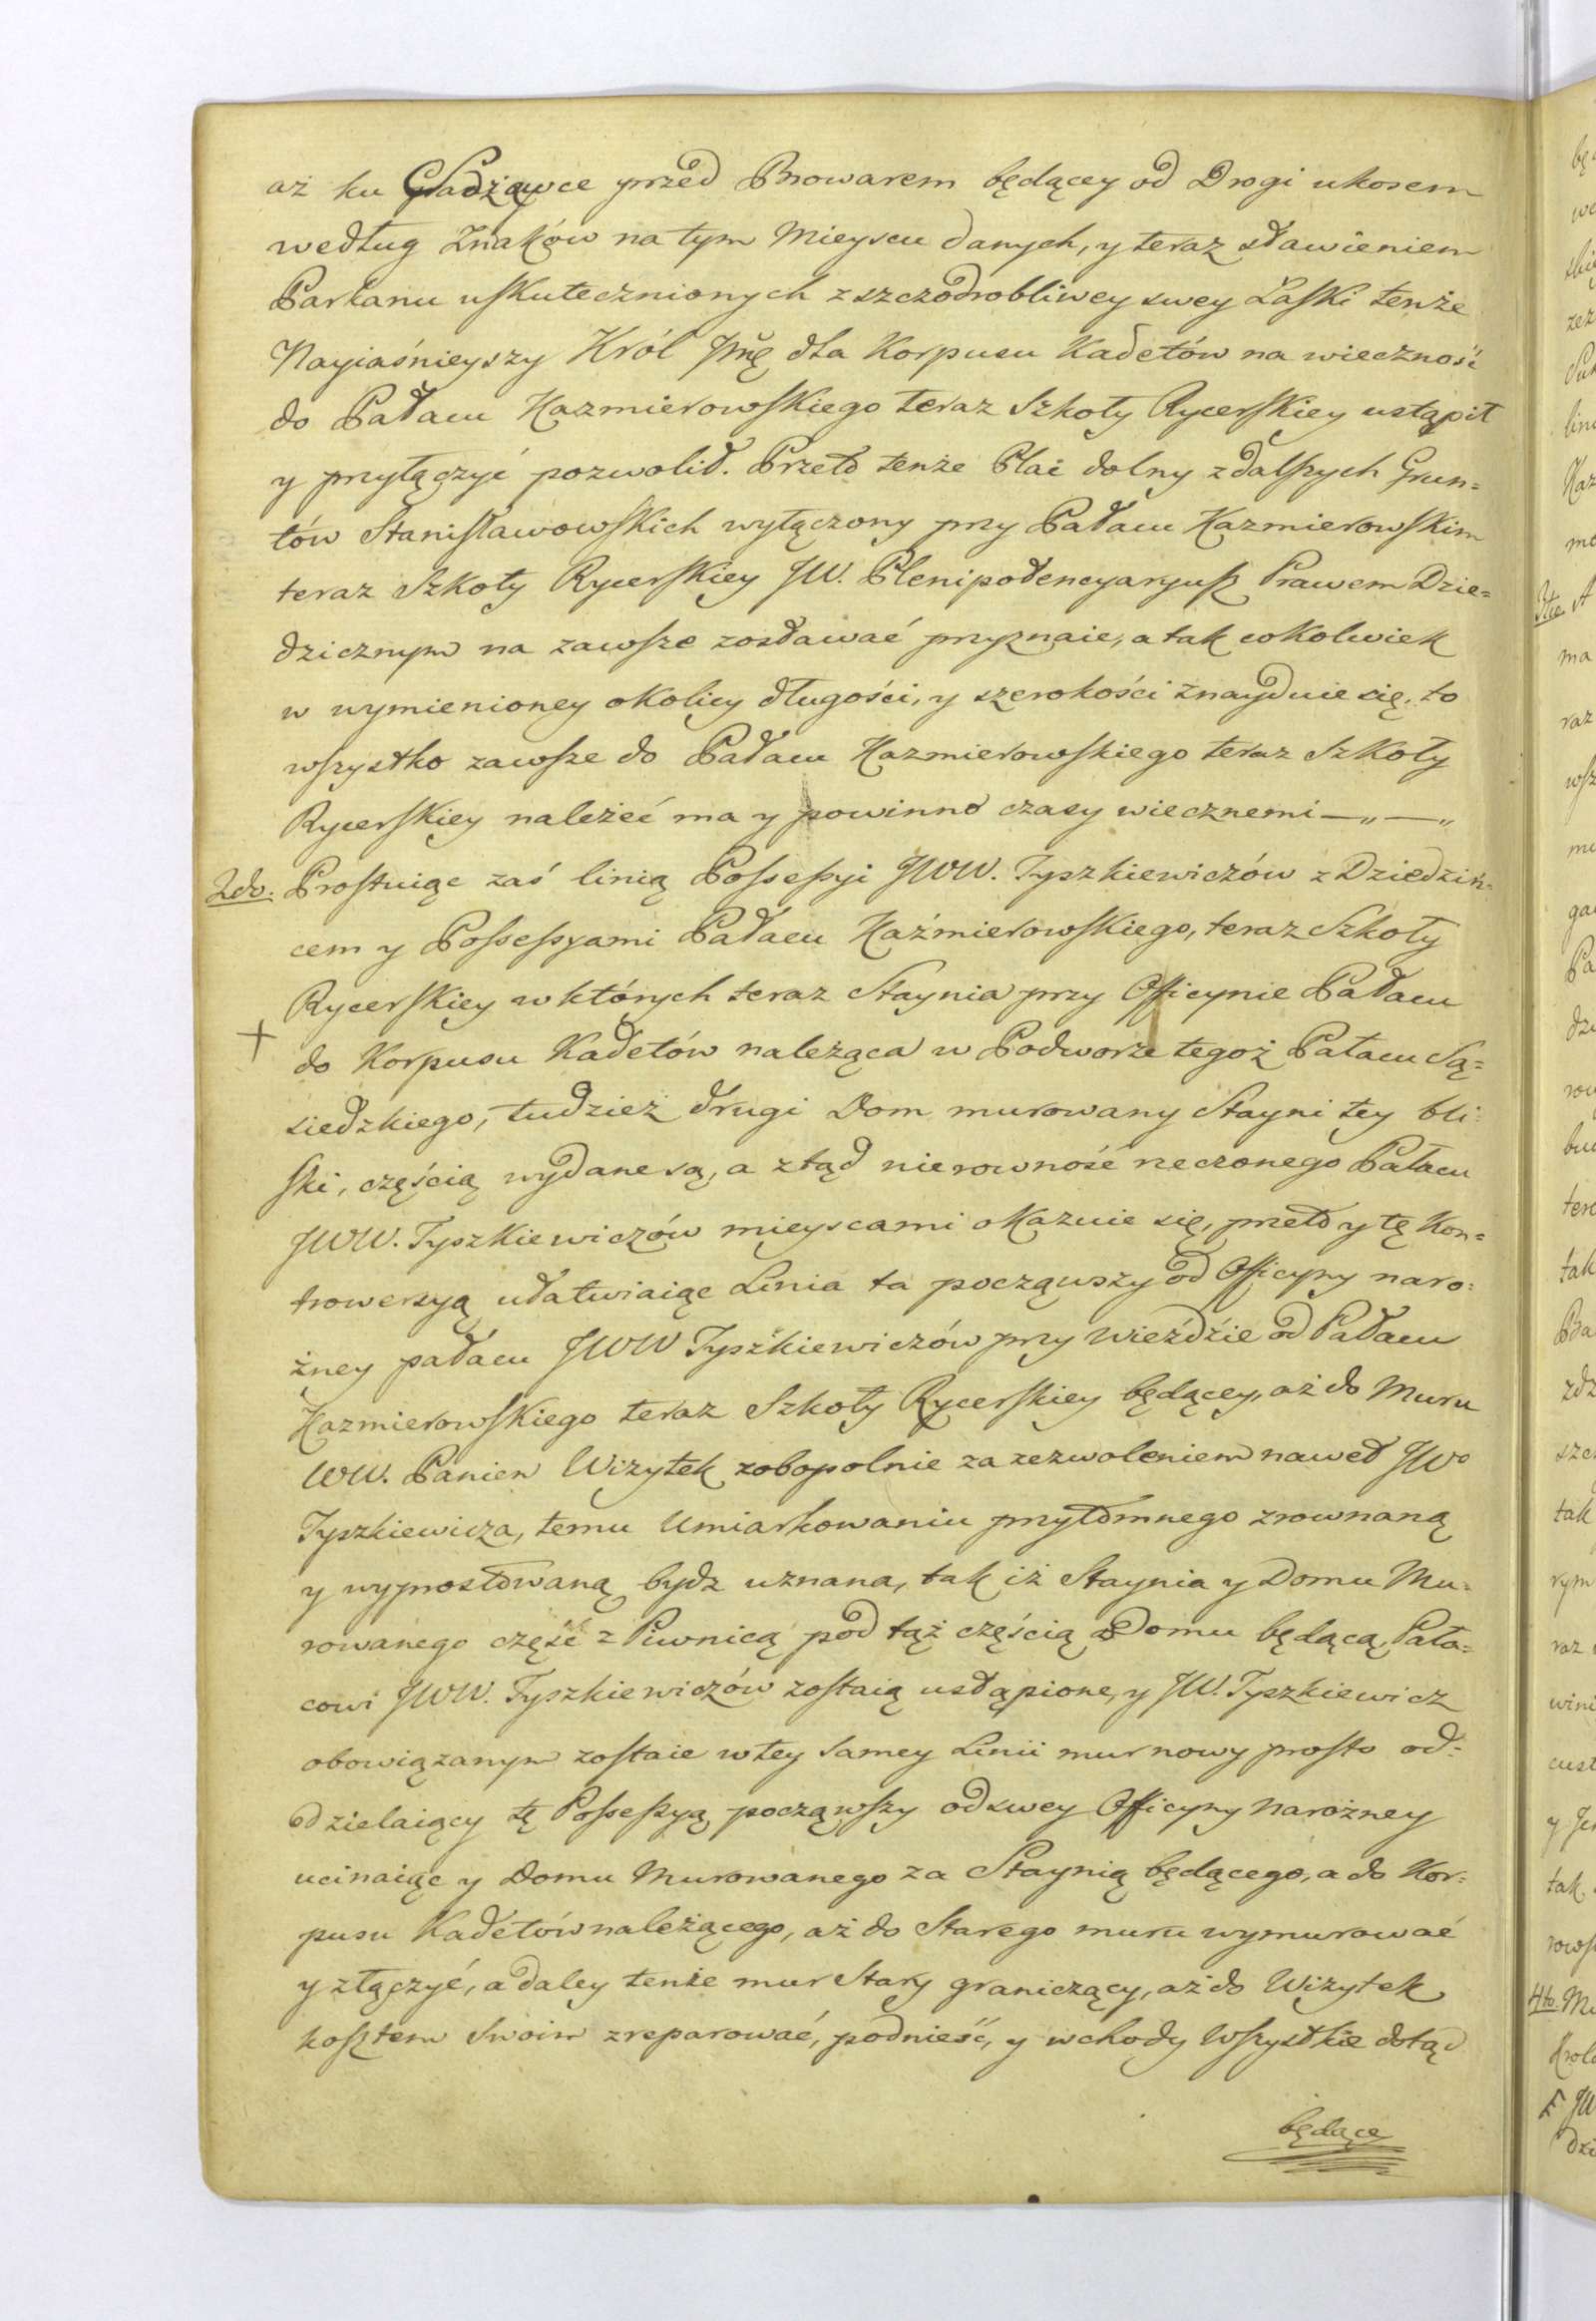 aż ku Sadzawce przed Browarem będącey od Drogi ukosem
według Znaków na tym Mieyscu danych, y teraz stawieniem
Parkanu uskutecznionych z szczodrobliwey swey Łaski tenże
Nayiaśnieyszy Król Jmć dla Korpusu Kadetów na wieczność
do Pałacu Kazmierowskiego teraz Szkoły Rycerskiey ustąpił
y przyłączyć pozwolił. Przeto tenże Plac dolny z dalszych Grun=
tów Stanisławowskich wyłączony przy Pałacu Kazmierowskim
teraz Szkoły Rycerskiey JW. Plenipotencyaryusz Prawem Dzie=
dzicznym na zawsze zostawać przyznaie, a tak cokolwiek
w wymienioney okolicy długości, y szerokości znayduie się, to
wszystko zawsze do Pałacu Kazmierowskiego teraz Szkoły
Rycerskiey należeć ma y powinno czasy wiecznemi —„—„
2do. Prostuiąc zaś linią Possessyi JWW. Tyszkiewiczów z Dziedziń=
cem y Possessyami Pałacu Kaźmierowskiego, teraz Szkoły
Rycerskiey w których teraz Staynia przy Officynie Pałacu
+ do Korpusu Kadetów należąca w Podworze tegoż Pałacu Są=
siedzkiego, tudzież drugi Dom murowany Stayni tey bli=
ski, częścią wydane są, a ztąd nierowność rzeczonego Pałacu
JWW. Tyszkiewiczów mieyscami okazuie się, przeto y tę Kon=
trowersyą ułatwiaiąc Linia ta począwszy od Officyny naro=
żney pałacu JWW Tyszkiewiczów przy wieździe od Pałacu
Kazmierowskiego teraz Szkoły Rycerskiey będącey, aż do Muru
WW. Panien Wizytek zobopolnie za zezwoleniem nawet JWo
Tyszkiewicza, temu Umiarkowaniu przytomnego zrownaną
y wyprostowaną bydz uznana, tak iż Staynia y Domu Mu=
rowanego część z Piwnicą pod tąż częścią Domu będącą, Pała=
cowi JWW. Tyszkiewiczów zostaią ustąpione, y JW. Tyszkiewicz
obowiązanym zostaie w tey samey Linii mur nowy prosto od=
dzielaiący tę Possessyą począwszy od swey Officyny narożney
ucinaiąc y Domu Murowanego za Staynią będącego, a do Kor=
pusu Kadetów należącego, aż do Starego muru wymurować
y złączyć, a daley tenże mur Stary graniczący, aż do Wizytek
kosztem Swoim zreparować, podnieść, y wchody wszystkie dotąd
będące